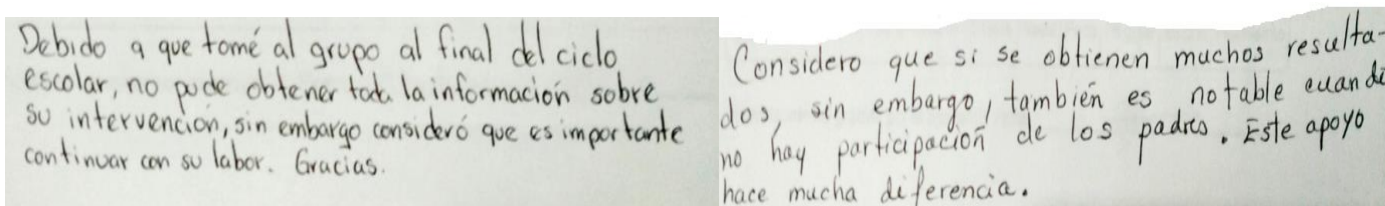 Debido a que tomé al grupo al final del ciclo
escolar, no pude obtener toda la información sobre
su intervención, sin embargo consideró que es importante
continuar con su labor. Gracias.
Considero que si se obtienen muchos resulta-
dos, sin embargo, también es notable cuando
no hay participación de los padres. Este apoyo
hace mucha diferencia.